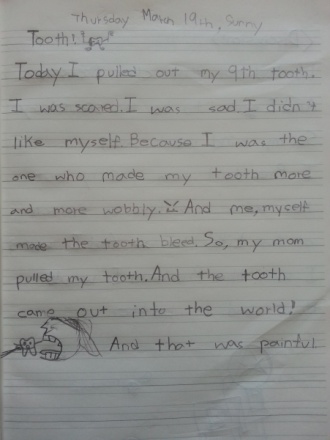 Thursday March 19th, Sunny
Tooth!!
Today I pulled out my 9th tooth.
I was scared. I was sad I didn't
like myself. Because I was the
one who made my tooth more
and more wobbly. And me, myself
made the tooth bleed. So, my mom
pulled my tooth. And the tooth
came out into the world!
And that was painful